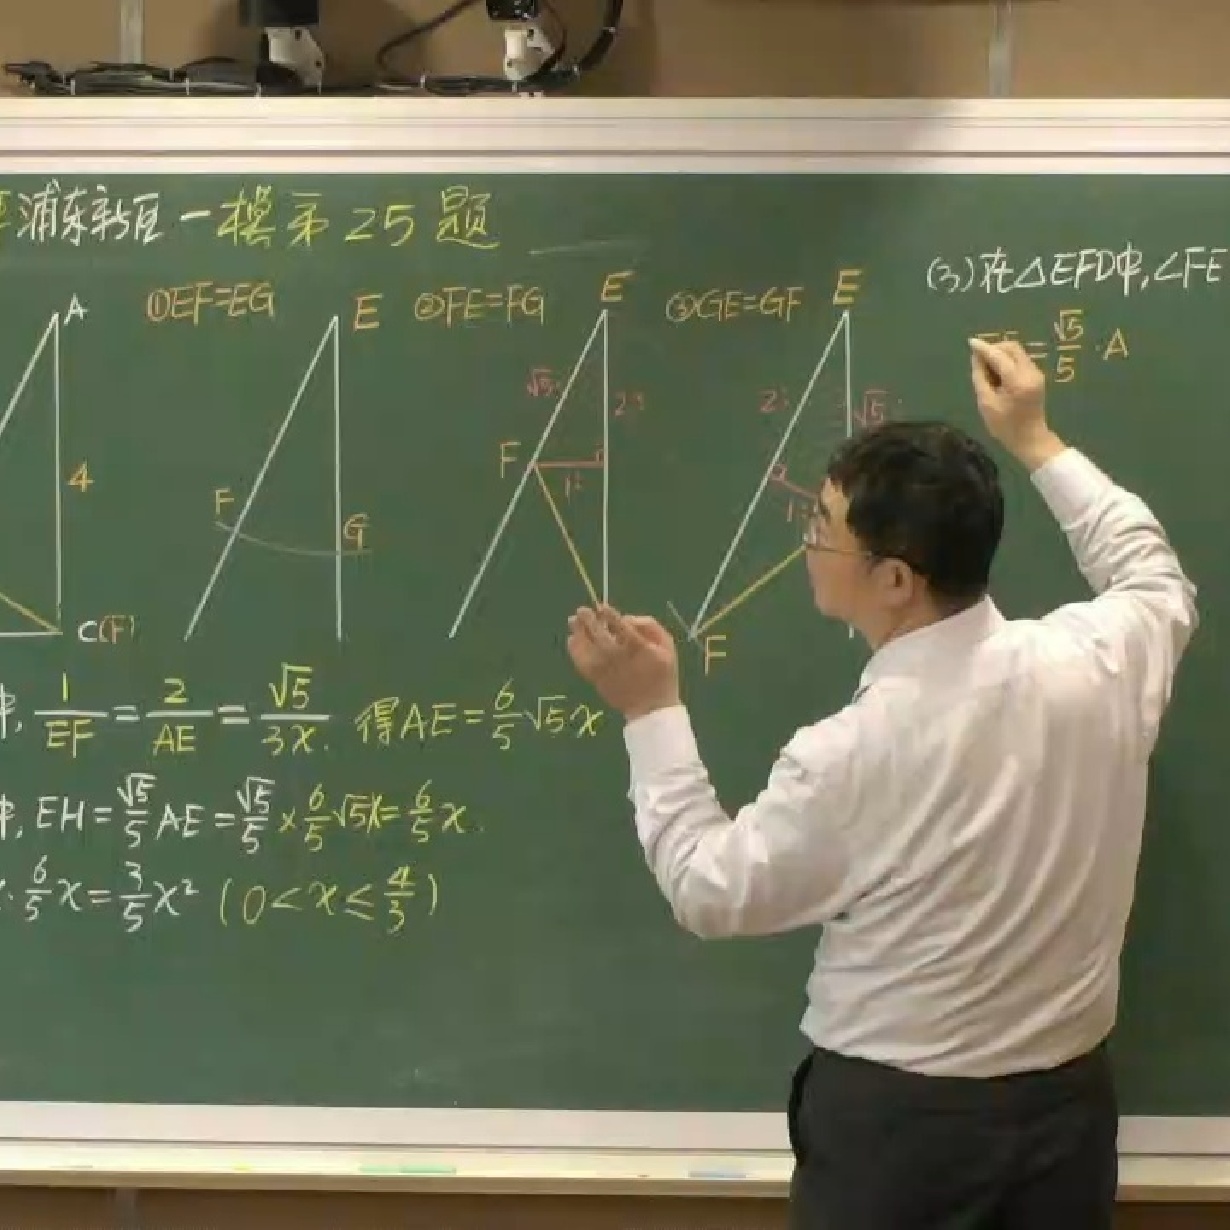 浦东新区一模第25题
A
4
C(F)
①EF=EG
E
F
G
②FE=FG
E
√5
2
F
1
③GE=GF
E
2
√5
1
F
(3)在△EFD中,∠FE
=√5/5·A
中, 1/EF=2/AE=√5/3x. 得AE=6/5√5x
中, EH=√5/5AE=√5/5×6/5√5x=6/5x.
·6/5x=3/5x² (0<x≤4/3)